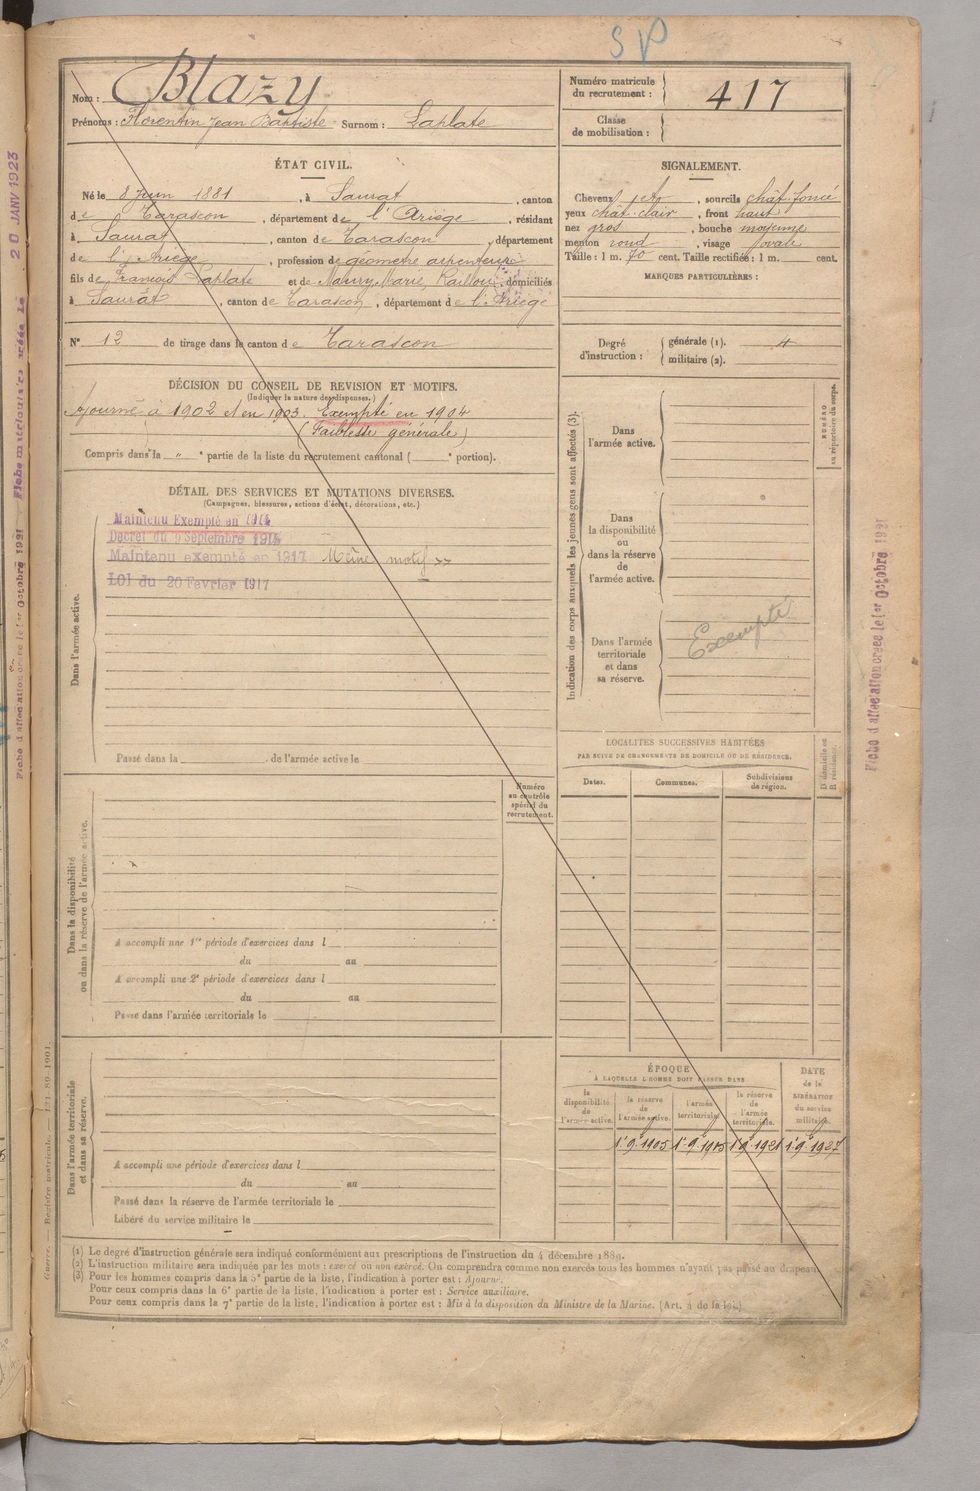 SP
Nom : Blazy
Prénoms : Florentin Jean Baptiste Surnom : Laplate
Numéro matricule du recrutement : 417
Classe de mobilisation :
ÉTAT CIVIL.
Né le 8 Juin 1881, à Saurat, canton
de Tarascon, département de l'Ariège, résidant
à Saurat, canton de Tarascon, département
de l'Ariège, profession de géomètre arpenteur
fils de François Laplate et de Maury Marie, domiciliés
à Saurat, canton de Tarascon, département de l'Ariège
N° 12 de tirage dans le canton de Tarascon
SIGNALEMENT.
Cheveux, sourcils chât. foncé
yeux chât. clair, front haut
nez gros, bouche moyenne
menton rond, visage ovale
Taille : 1 m. 70 cent. Taille rectifiée : 1 m. cent.
MARQUES PARTICULIÈRES :
Degré d'instruction : générale (1). 4
militaire (2).
DÉCISION DU CONSEIL DE REVISION ET MOTIFS.
(Indiquer la nature des dispenses.)
Ajourné à 1902 et en 1903. Exempté en 1904
(Faiblesse générale)
Compris dans la " e partie de la liste du recrutement cantonal ( e portion).
DÉTAIL DES SERVICES ET MUTATIONS DIVERSES.
(Campagnes, blessures, actions d'éclat, décorations, etc.)
Maintenu Exempté en 1914
Décret du 9 Septembre 1914
Maintenu exempté en 1917 Même motif
LOI du 20 Février 1917
Dans l'armée active.
Passé dans la de l'armée active le
Indication des corps auxquels les jeunes gens sont affectés (3).
Dans l'armée active.
Dans la disponibilité ou dans la réserve de l'armée active.
Dans l'armée territoriale et dans sa réserve.
Exempté
NUMÉRO au répertoire du corps.
LOCALITÉS SUCCESSIVES HABITÉES
PAR SUITE DE CHANGEMENTS DE DOMICILE OU DE RÉSIDENCE.
Dates. Communes. Subdivisions de région. D domicile ou R résidence.
Numéro au contrôle spécial du recrutement.
Dans la disponibilité ou dans la réserve de l'armée active.
A accompli une 1re période d'exercices dans l
du au
A accompli une 2e période d'exercices dans l
du au
Passé dans l'armée territoriale le
Dans l'armée territoriale et dans sa réserve.
A accompli une période d'exercices dans l
du au
Passé dans la réserve de l'armée territoriale le
Libéré du service militaire le
ÉPOQUE
À LAQUELLE L'HOMME DOIT PASSER DANS
la disponibilité de l'armée active.
la réserve de l'armée active.
l'armée territoriale.
la réserve de l'armée territoriale.
DATE de la LIBÉRATION du service militaire.
1er 9 1905 1er 9 1915 1er 9 1921 1er 9 1927
(1) Le degré d'instruction générale sera indiqué conformément aux prescriptions de l'instruction du 4 décembre 1889.
(2) L'instruction militaire sera indiquée par les mots : exercé ou non exercé. On comprendra comme non exercés tous les hommes n'ayant pas passé au drapeau.
(3) Pour les hommes compris dans la 5e partie de la liste, l'indication à porter est : Ajourné.
Pour ceux compris dans la 6e partie de la liste, l'indication à porter est : Service auxiliaire.
Pour ceux compris dans la 7e partie de la liste, l'indication à porter est : Mis à la disposition du Ministre de la Marine. (Art. 4 de la loi.)
Guerre. — Registre matricule. — 171-89-1901.
Fiche d'affectation créée le 1er Octobre 1921
Fiche matriculaire créée Le 20 JANV 1923
Fiche d'affectation créée le 1er Octobre 1921